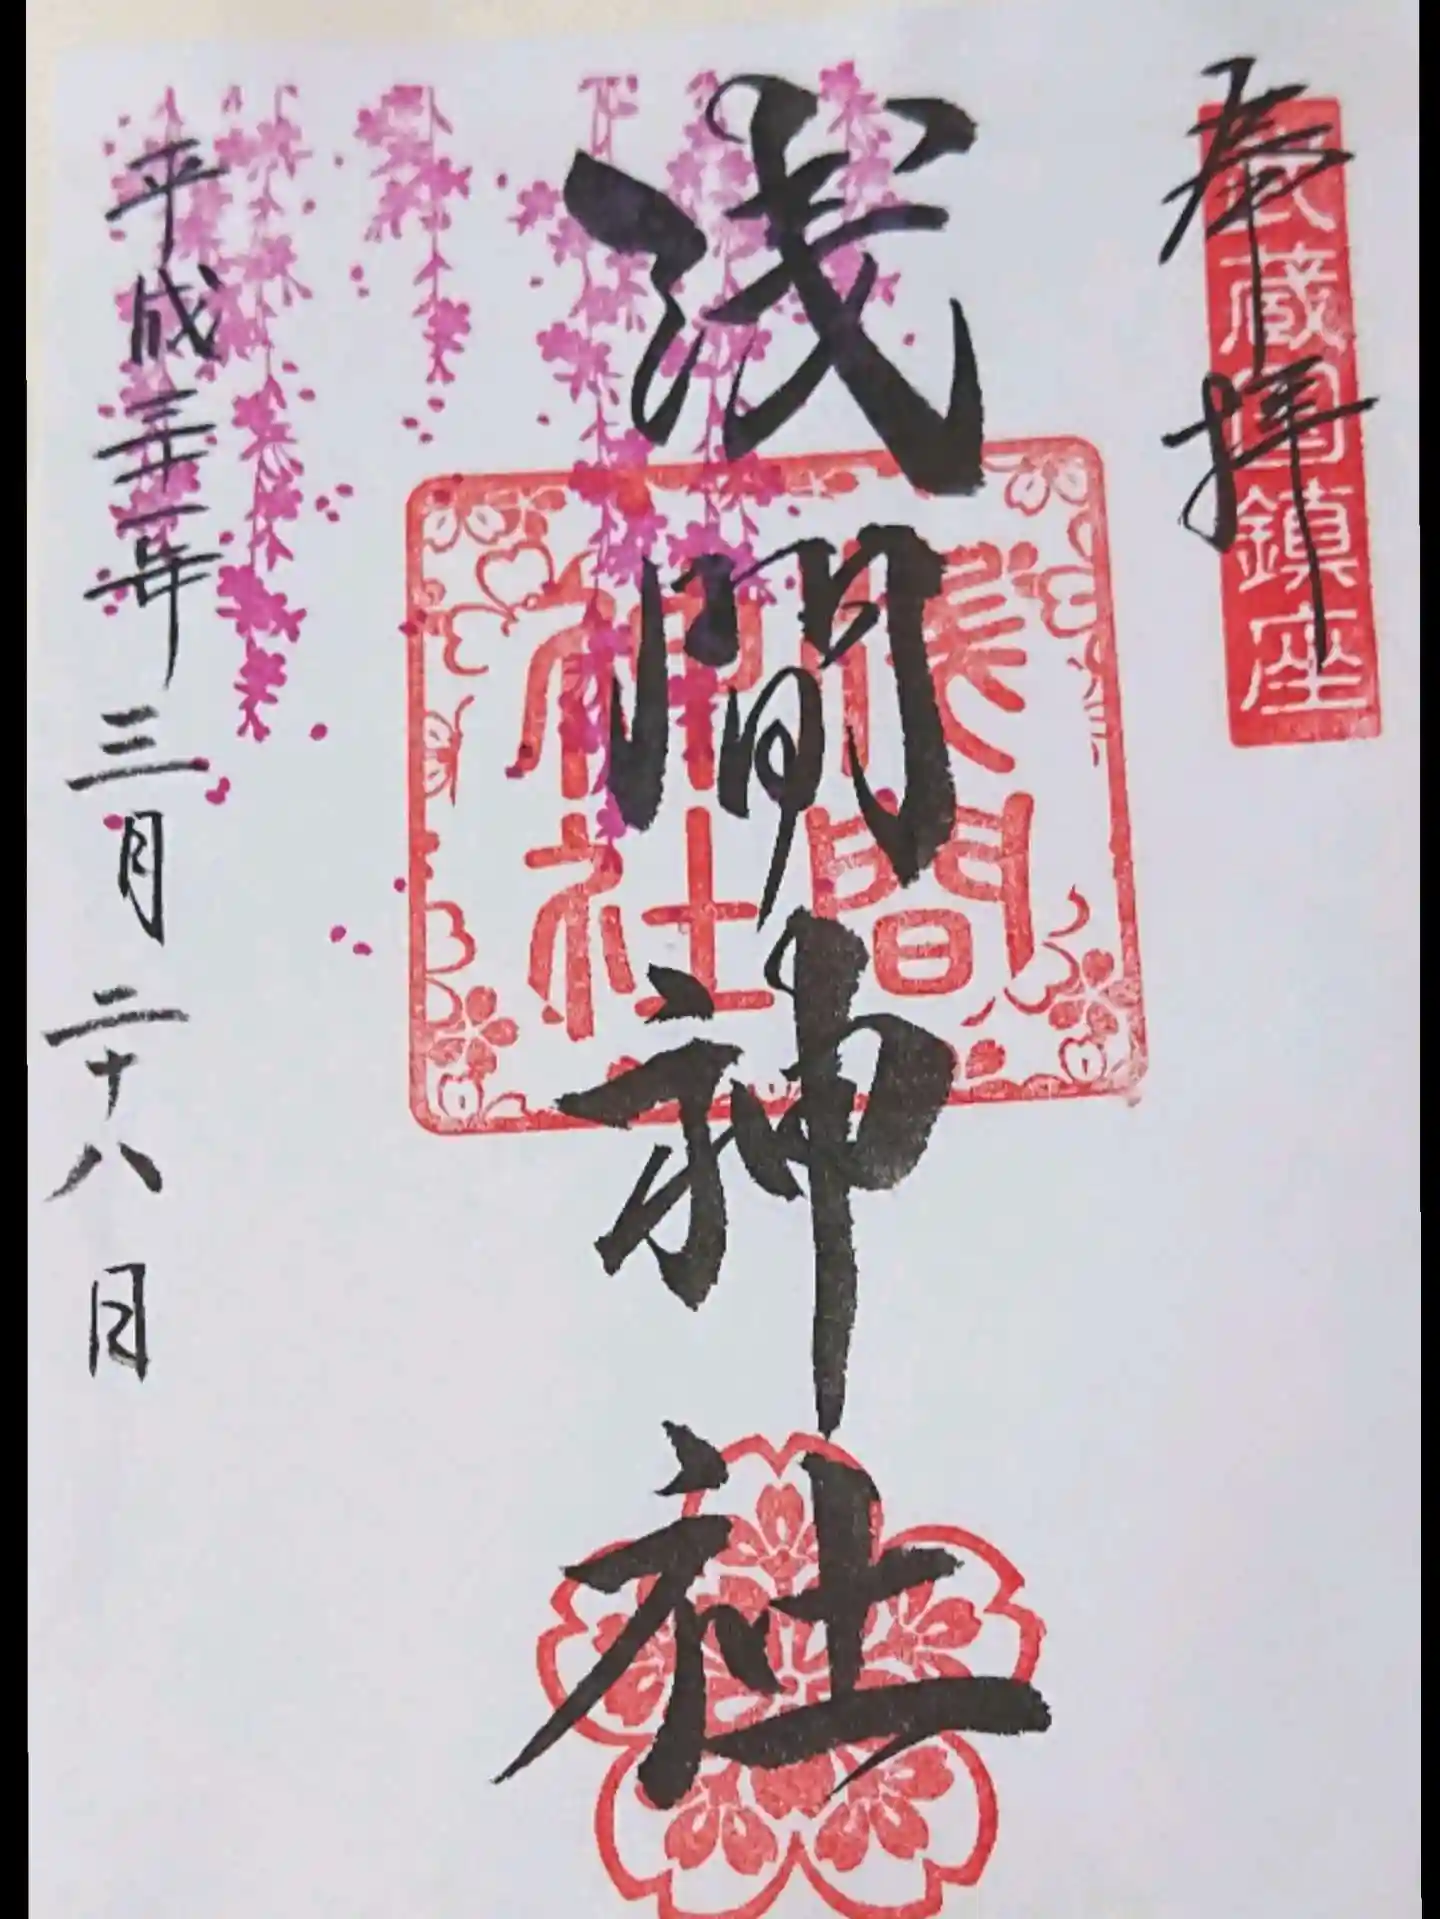 奉拝
武蔵国鎮座
浅間神社
浅間
神社
平成三十一年三月二十八日